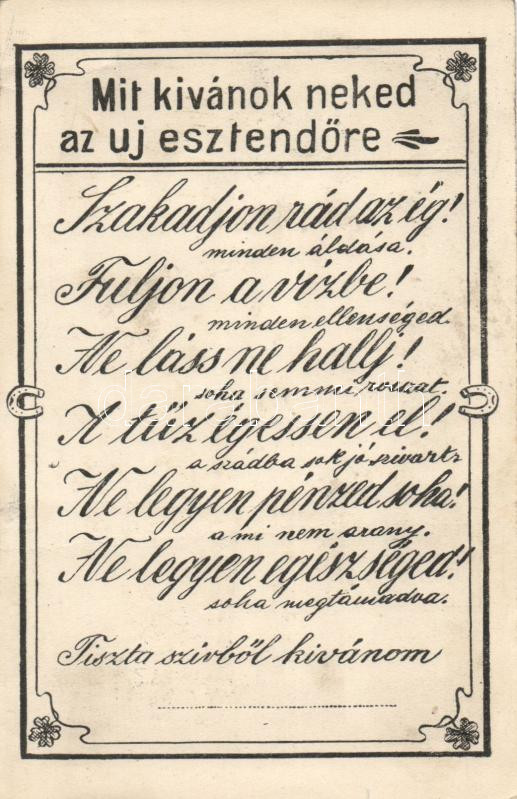 Mit kivánok neked
az uj esztendőre
Szakadjon rád az ég!
minden áldása.
Fuljon a vizbe!
minden ellenséged.
Ne láss ne hallj!
soha semmi rosszat.
A tűz égessen el!
a szádba sok jó szivart.
Ne legyen pénzed soha!
a mi nem arany.
Ne legyen egészséged!
soha megtámadva.
Tiszta szivből kivánom
darabanth